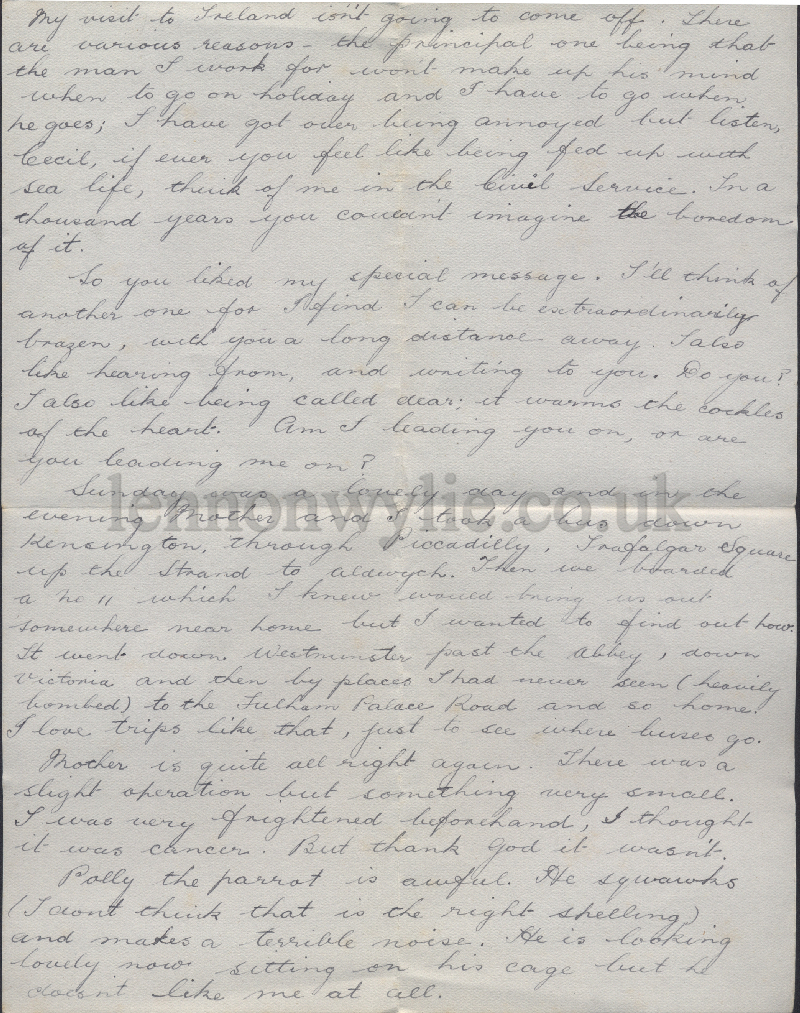 My visit to Ireland isn't going to come off. There
are various reasons - the principal one being that
the man I work for won't make up his mind
when to go on holiday and I have to go when
he goes; I have got over being annoyed but listen,
Cecil, if ever you feel like being fed up with
sea life, think of me in the Civil Service. In a
thousand years you couldn't imagine the boredom
of it.
So you liked my special message. I'll think of
another one for I find I can be extraordinarily
brazen, with you a long distance away. I also
like hearing from, and writing to you. Do you?
I also like being called dear; it warms the cockles
of the heart. Am I leading you on, or are
you leading me on?
Sunday was a lovely day and in the
lennonwylie.co.uk
evening Mother and I took a bus down
Kensington, through Piccadilly, Trafalgar Square
up the Strand to Aldwych. Then we boarded
a no 11 which I knew would bring us out
somewhere near home but I wanted to find out how.
It went down Westminster past the Abbey, down
Victoria and then by places I had never seen (heavily
bombed) to the Fulham Palace Road and so home.
I love trips like that, just to see where buses go.
Mother is quite all right again. There was a
slight operation but something very small.
I was very frightened beforehand, I thought
it was cancer. But thank God it wasn't.
Polly the parrot is awful. He squawks
(I dont think that is the right spelling)
and makes a terrible noise. He is looking
lovely now sitting on his cage but he
doesn't like me at all.